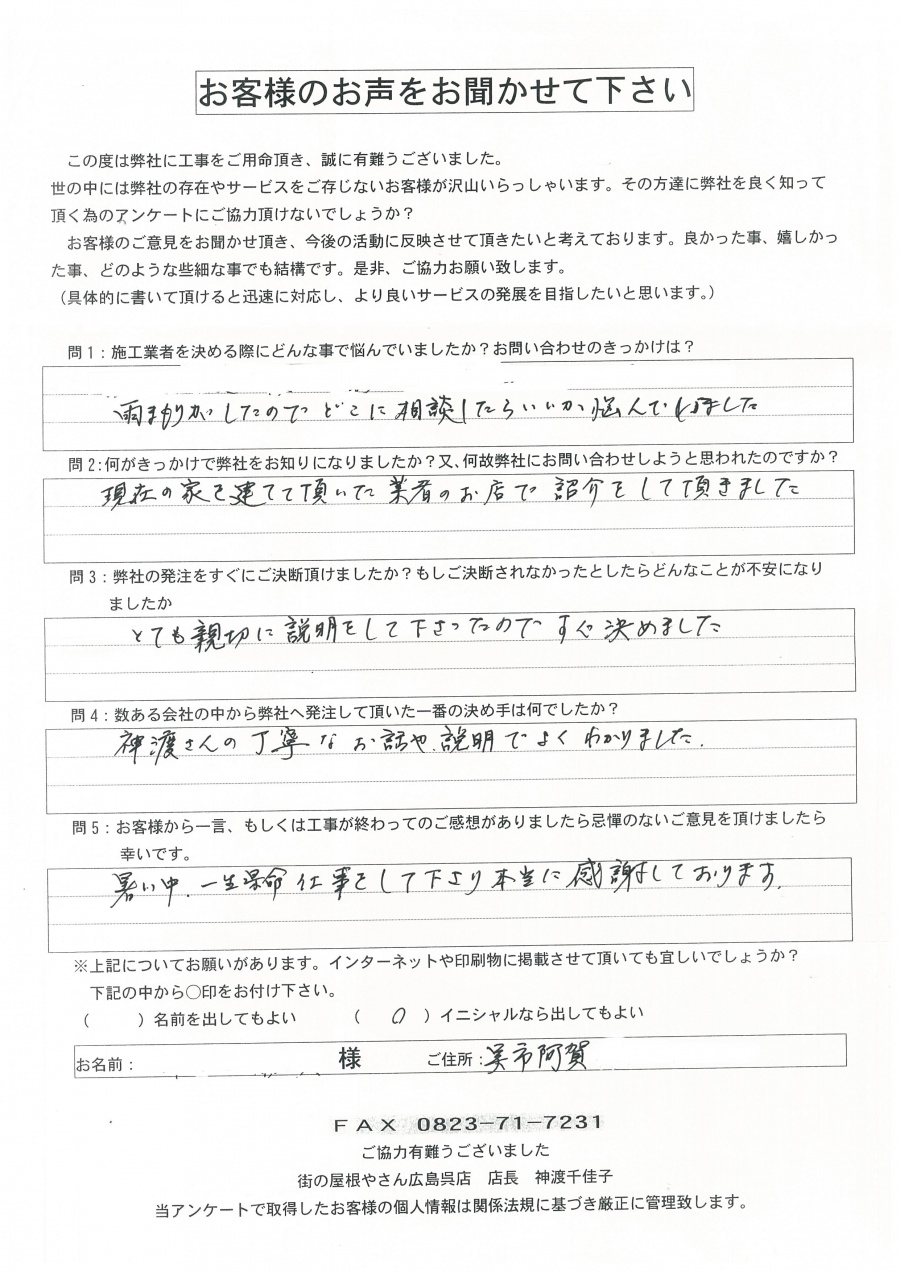 お客様のお声をお聞かせて下さい
この度は弊社に工事をご用命頂き、誠に有難うございました。
世の中には弊社の存在やサービスをご存じないお客様が沢山いらっしゃいます。その方達に弊社を良く知って
頂く為のアンケートにご協力頂けないでしょうか？
お客様のご意見をお聞かせ頂き、今後の活動に反映させて頂きたいと考えております。良かった事、嬉しかっ
た事、どのような些細な事でも結構です。是非、ご協力お願い致します。
（具体的に書いて頂けると迅速に対応し、より良いサービスの発展を目指したいと思います。）
問1：施工業者を決める際にどんな事で悩んでいましたか？お問い合わせのきっかけは？
雨もりがしたのでどこに相談したらいいか悩んでいました
問2：何がきっかけで弊社をお知りになりましたか？又、何故弊社にお問い合わせしようと思われたのですか？
現在の家を建てて頂いた業者のお店で紹介をして頂きました
問3：弊社の発注をすぐにご決断頂けましたか？もしご決断されなかったとしたらどんなことが不安になり
ましたか
とても親切に説明をして下さったのですぐ決めました
問4：数ある会社の中から弊社へ発注して頂いた一番の決め手は何でしたか？
神渡さんの丁寧なお話や、説明でよくわかりました。
問5：お客様から一言、もしくは工事が終わってのご感想がありましたら忌憚のないご意見を頂けましたら
幸いです。
暑い中、一生懸命仕事をして下さり本当に感謝しております。
※上記についてお願いがあります。インターネットや印刷物に掲載させて頂いても宜しいでしょうか？
下記の中から〇印をお付け下さい。
（　　）名前を出してもよい　（　〇　）イニシャルなら出してもよい
お名前：　様　ご住所：呉市阿賀
ＦＡＸ　0823−71−7231
ご協力有難うございました
街の屋根やさん広島呉店　店長　神渡千佳子
当アンケートで取得したお客様の個人情報は関係法規に基づき厳正に管理致します。